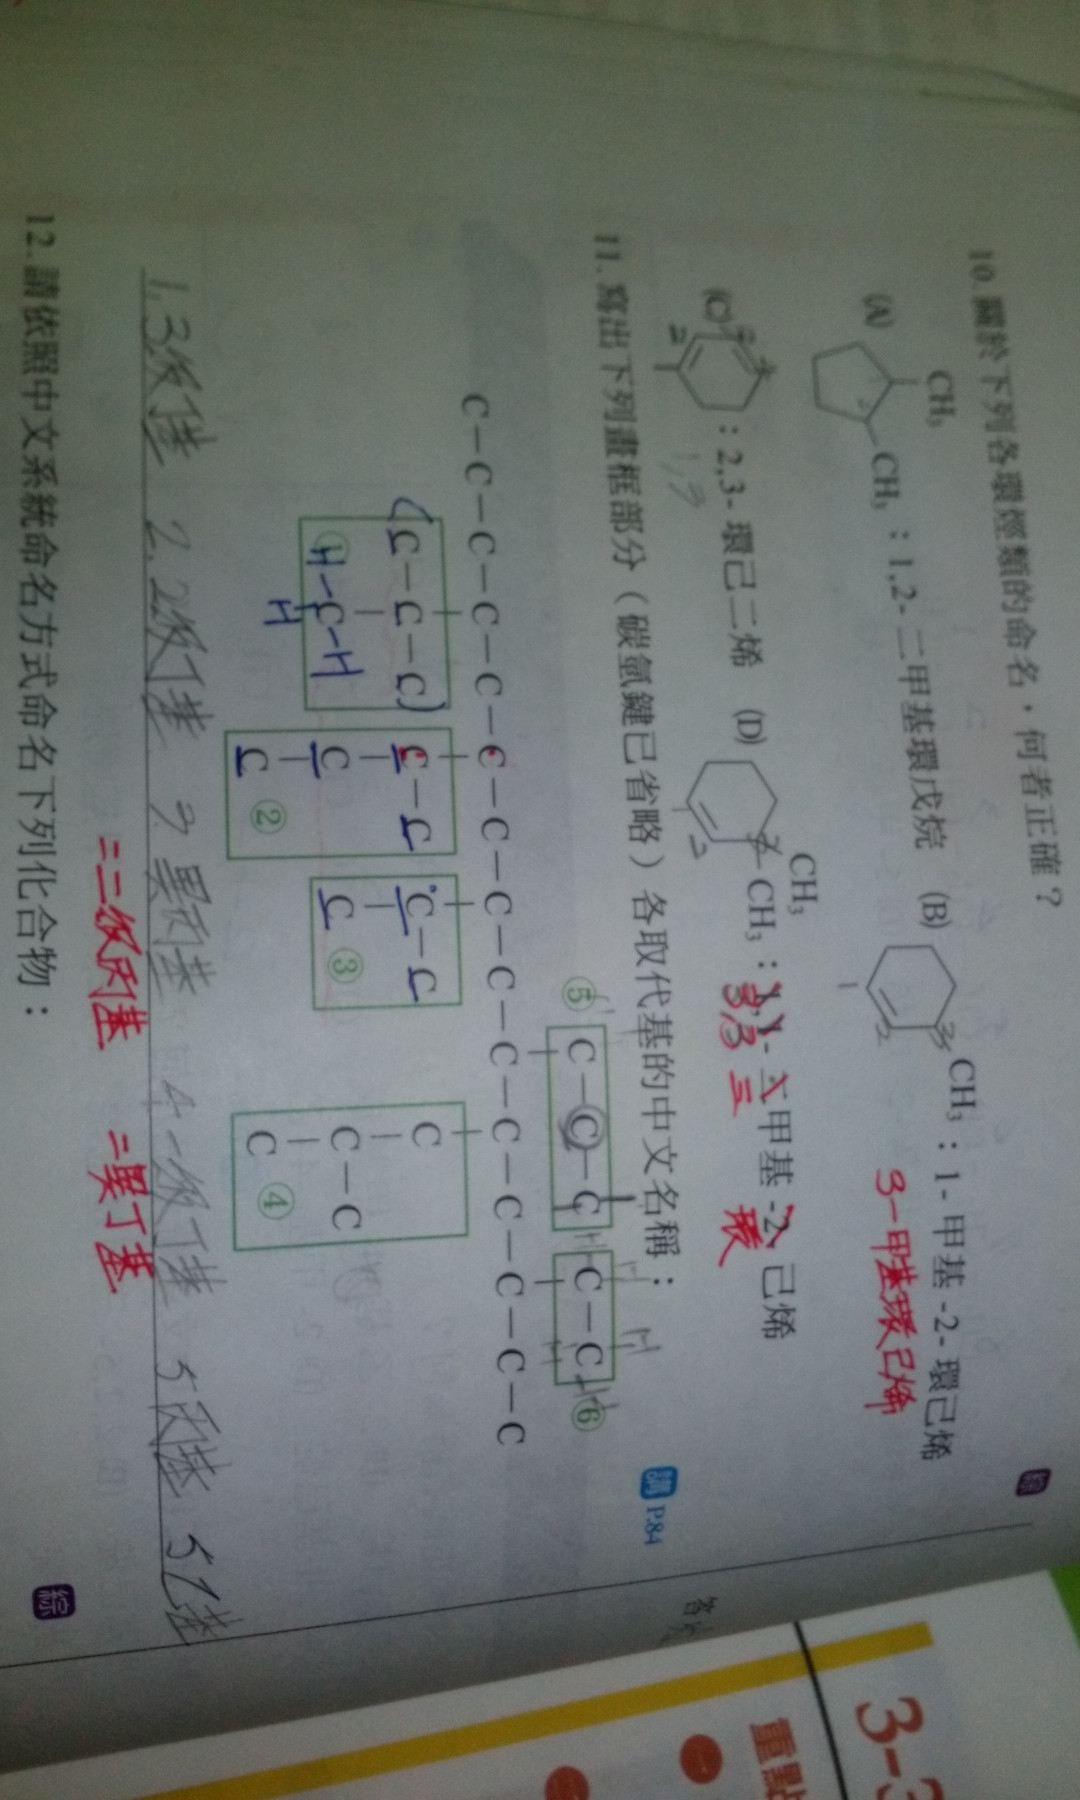 10. 關於下列各環烴類的命名，何者正確？
綜
(A) CH₃ CH₃：1,2-二甲基環戊烷 (B) CH₃：1-甲基-2-環己烯
3-甲基環己烯
(C)：2,3-環己二烯 (D) CH₃ CH₃：1,1-二甲基-2-己烯
1,3
3,3 三 環
11. 寫出下列畫框部分（碳氫鍵已省略）各取代基的中文名稱：
講 P.84
⑤ C－C－C C－C ⑥
C－C－C－C－C－C－C－C－C－C－C－C－C－C－C
C－C－C C－C C－C C
① H－C－H C C ③ C－C
H C ② C ④
1. 3級 2. 2級丁基 3 異丙基 4 一級丁基 5 丙基 5 乙基
=二級丙基 =異丁基
12. 請依照中文系統命名方式命名下列化合物：
綜
答
3-3
重點
一